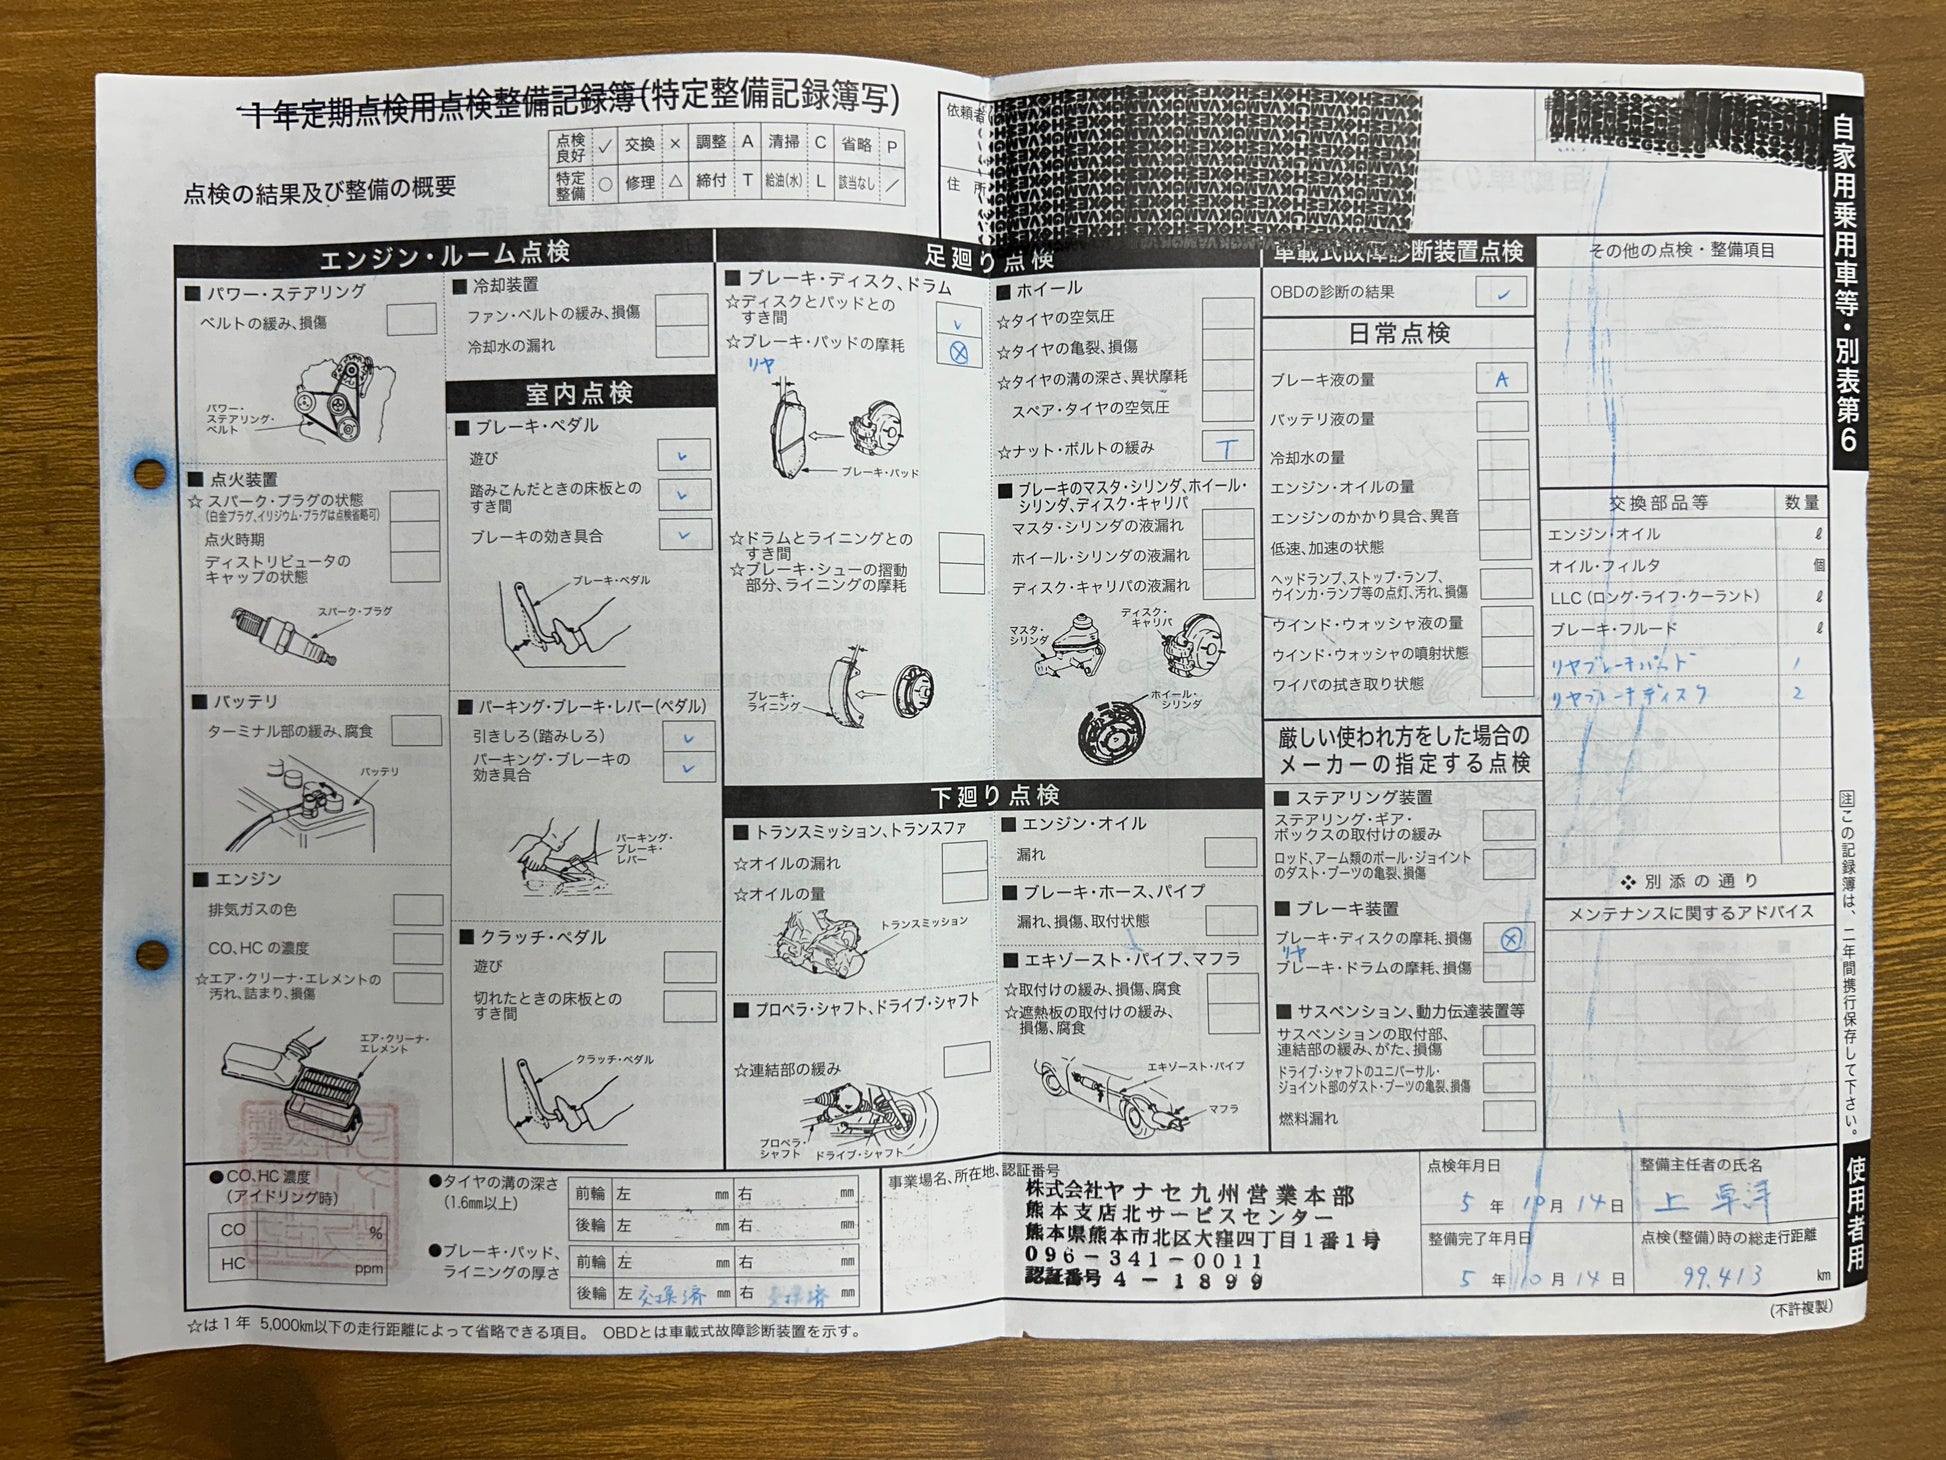 1年定期点検用点検整備記録簿(特定整備記録簿写)
点検の結果及び整備の概要
点検良好 ✓ 交換 × 調整 A 清掃 C 省略 P
特定整備 ○ 修理 △ 締付 T 給油(水) L 該当なし ／
依頼者
住 所
自家用乗用車等・別表第6
エンジン・ルーム点検
■ パワー・ステアリング
ベルトの緩み、損傷
パワー・
ステアリング・
ベルト
■ 点火装置
☆ スパーク・プラグの状態
(白金プラグ、イリジウム・プラグは点検省略可)
点火時期
ディストリビュータの
キャップの状態
スパーク・プラグ
■ バッテリ
ターミナル部の緩み、腐食
バッテリ
■ エンジン
排気ガスの色
CO、HCの濃度
☆エア・クリーナ・エレメントの
汚れ、詰まり、損傷
エア・クリーナ・
エレメント
■ 冷却装置
ファン・ベルトの緩み、損傷
冷却水の漏れ
室内点検
■ ブレーキ・ペダル
遊び ✓
踏みこんだときの床板との
すき間 ✓
ブレーキの効き具合 ✓
ブレーキ・ペダル
■ パーキング・ブレーキ・レバー(ペダル)
引きしろ(踏みしろ) ✓
パーキング・ブレーキの
効き具合 ✓
パーキング・
ブレーキ・
レバー
■ クラッチ・ペダル
遊び
切れたときの床板との
すき間
クラッチ・ペダル
足廻り点検
■ ブレーキ・ディスク、ドラム
☆ディスクとパッドとの
すき間 ✓
☆ブレーキ・パッドの摩耗 ⊗
リヤ
ブレーキ・パッド
☆ドラムとライニングとの
すき間
☆ブレーキ・シューの摺動
部分、ライニングの摩耗
ブレーキ・
ライニング
■ ホイール
☆タイヤの空気圧
☆タイヤの亀裂、損傷
☆タイヤの溝の深さ、異状摩耗
スペア・タイヤの空気圧
☆ナット・ボルトの緩み T
■ ブレーキのマスタ・シリンダ、ホイール・
シリンダ、ディスク・キャリパ
マスタ・シリンダの液漏れ
ホイール・シリンダの液漏れ
ディスク・キャリパの液漏れ
マスタ・
シリンダ
ディスク・
キャリパ
ホイール・
シリンダ
下廻り点検
■ トランスミッション、トランスファ
☆オイルの漏れ
☆オイルの量
トランスミッション
■ プロペラ・シャフト、ドライブ・シャフト
☆連結部の緩み
プロペラ・
シャフト
ドライブ・シャフト
■ エンジン・オイル
漏れ
■ ブレーキ・ホース、パイプ
漏れ、損傷、取付状態
■ エキゾースト・パイプ、マフラ
☆取付けの緩み、損傷、腐食
☆遮熱板の取付けの緩み、
損傷、腐食
エキゾースト・パイプ
マフラ
車載式故障診断装置点検
OBDの診断の結果 ✓
日常点検
ブレーキ液の量 A
バッテリ液の量
冷却水の量
エンジン・オイルの量
エンジンのかかり具合、異音
低速、加速の状態
ヘッドランプ、ストップ・ランプ、
ウインカ・ランプ等の点灯、汚れ、損傷
ウインド・ウォッシャ液の量
ウインド・ウォッシャの噴射状態
ワイパの拭き取り状態
厳しい使われ方をした場合の
メーカーの指定する点検
■ ステアリング装置
ステアリング・ギア・
ボックスの取付けの緩み
ロッド、アーム類のボール・ジョイント
のダスト・ブーツの亀裂、損傷
■ ブレーキ装置
ブレーキ・ディスクの摩耗、損傷 ⊗
リヤ
ブレーキ・ドラムの摩耗、損傷
■ サスペンション、動力伝達装置等
サスペンションの取付部、
連結部の緩み、がた、損傷
ドライブ・シャフトのユニバーサル・
ジョイント部のダスト・ブーツの亀裂、損傷
燃料漏れ
その他の点検・整備項目
交換部品等 数量
エンジン・オイル ℓ
オイル・フィルタ 個
LLC(ロング・ライフ・クーラント) ℓ
ブレーキ・フルード ℓ
リヤブレーキパッド 1
リヤブレーキディスク 2
❖ 別添の通り
メンテナンスに関するアドバイス
注 この記録簿は、二年間携行保存して下さい。
使用者用
●CO、HC濃度
(アイドリング時)
CO %
HC ppm
●タイヤの溝の深さ
(1.6mm以上)
前輪 左 mm 右 mm
後輪 左 mm 右 mm
●ブレーキ・パッド、
ライニングの厚さ
前輪 左 mm 右 mm
後輪 左 交換済 mm 右 交換済 mm
事業場名、所在地、認証番号
株式会社ヤナセ九州営業本部
熊本支店北サービスセンター
熊本県熊本市北区大窪四丁目1番1号
096-341-0011
認証番号 4-1899
点検年月日
5 年 10 月 14 日
整備主任者の氏名
整備完了年月日
5 年 10 月 14 日
点検(整備)時の総走行距離
99,413 km
☆は1年 5,000km以下の走行距離によって省略できる項目。 OBDとは車載式故障診断装置を示す。
(不許複製)